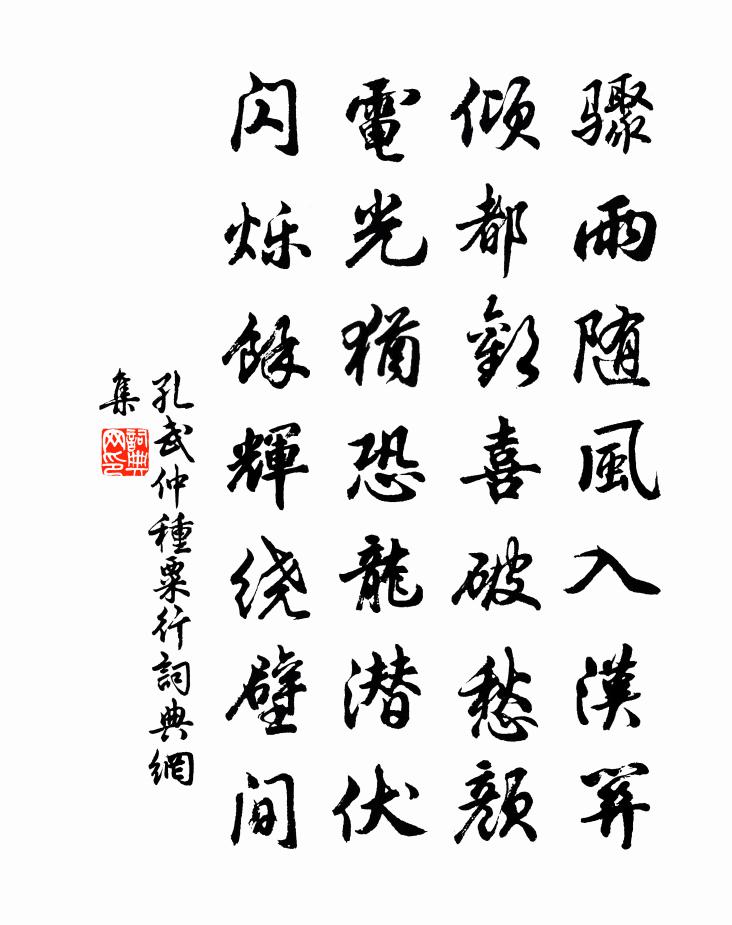 骤雨随風入漢關
倾都歡喜破愁颜
電光猶恐龍潜伏
闪烁餘輝绕壁间
孔武仲種粟行詞典網
集
詞典网印